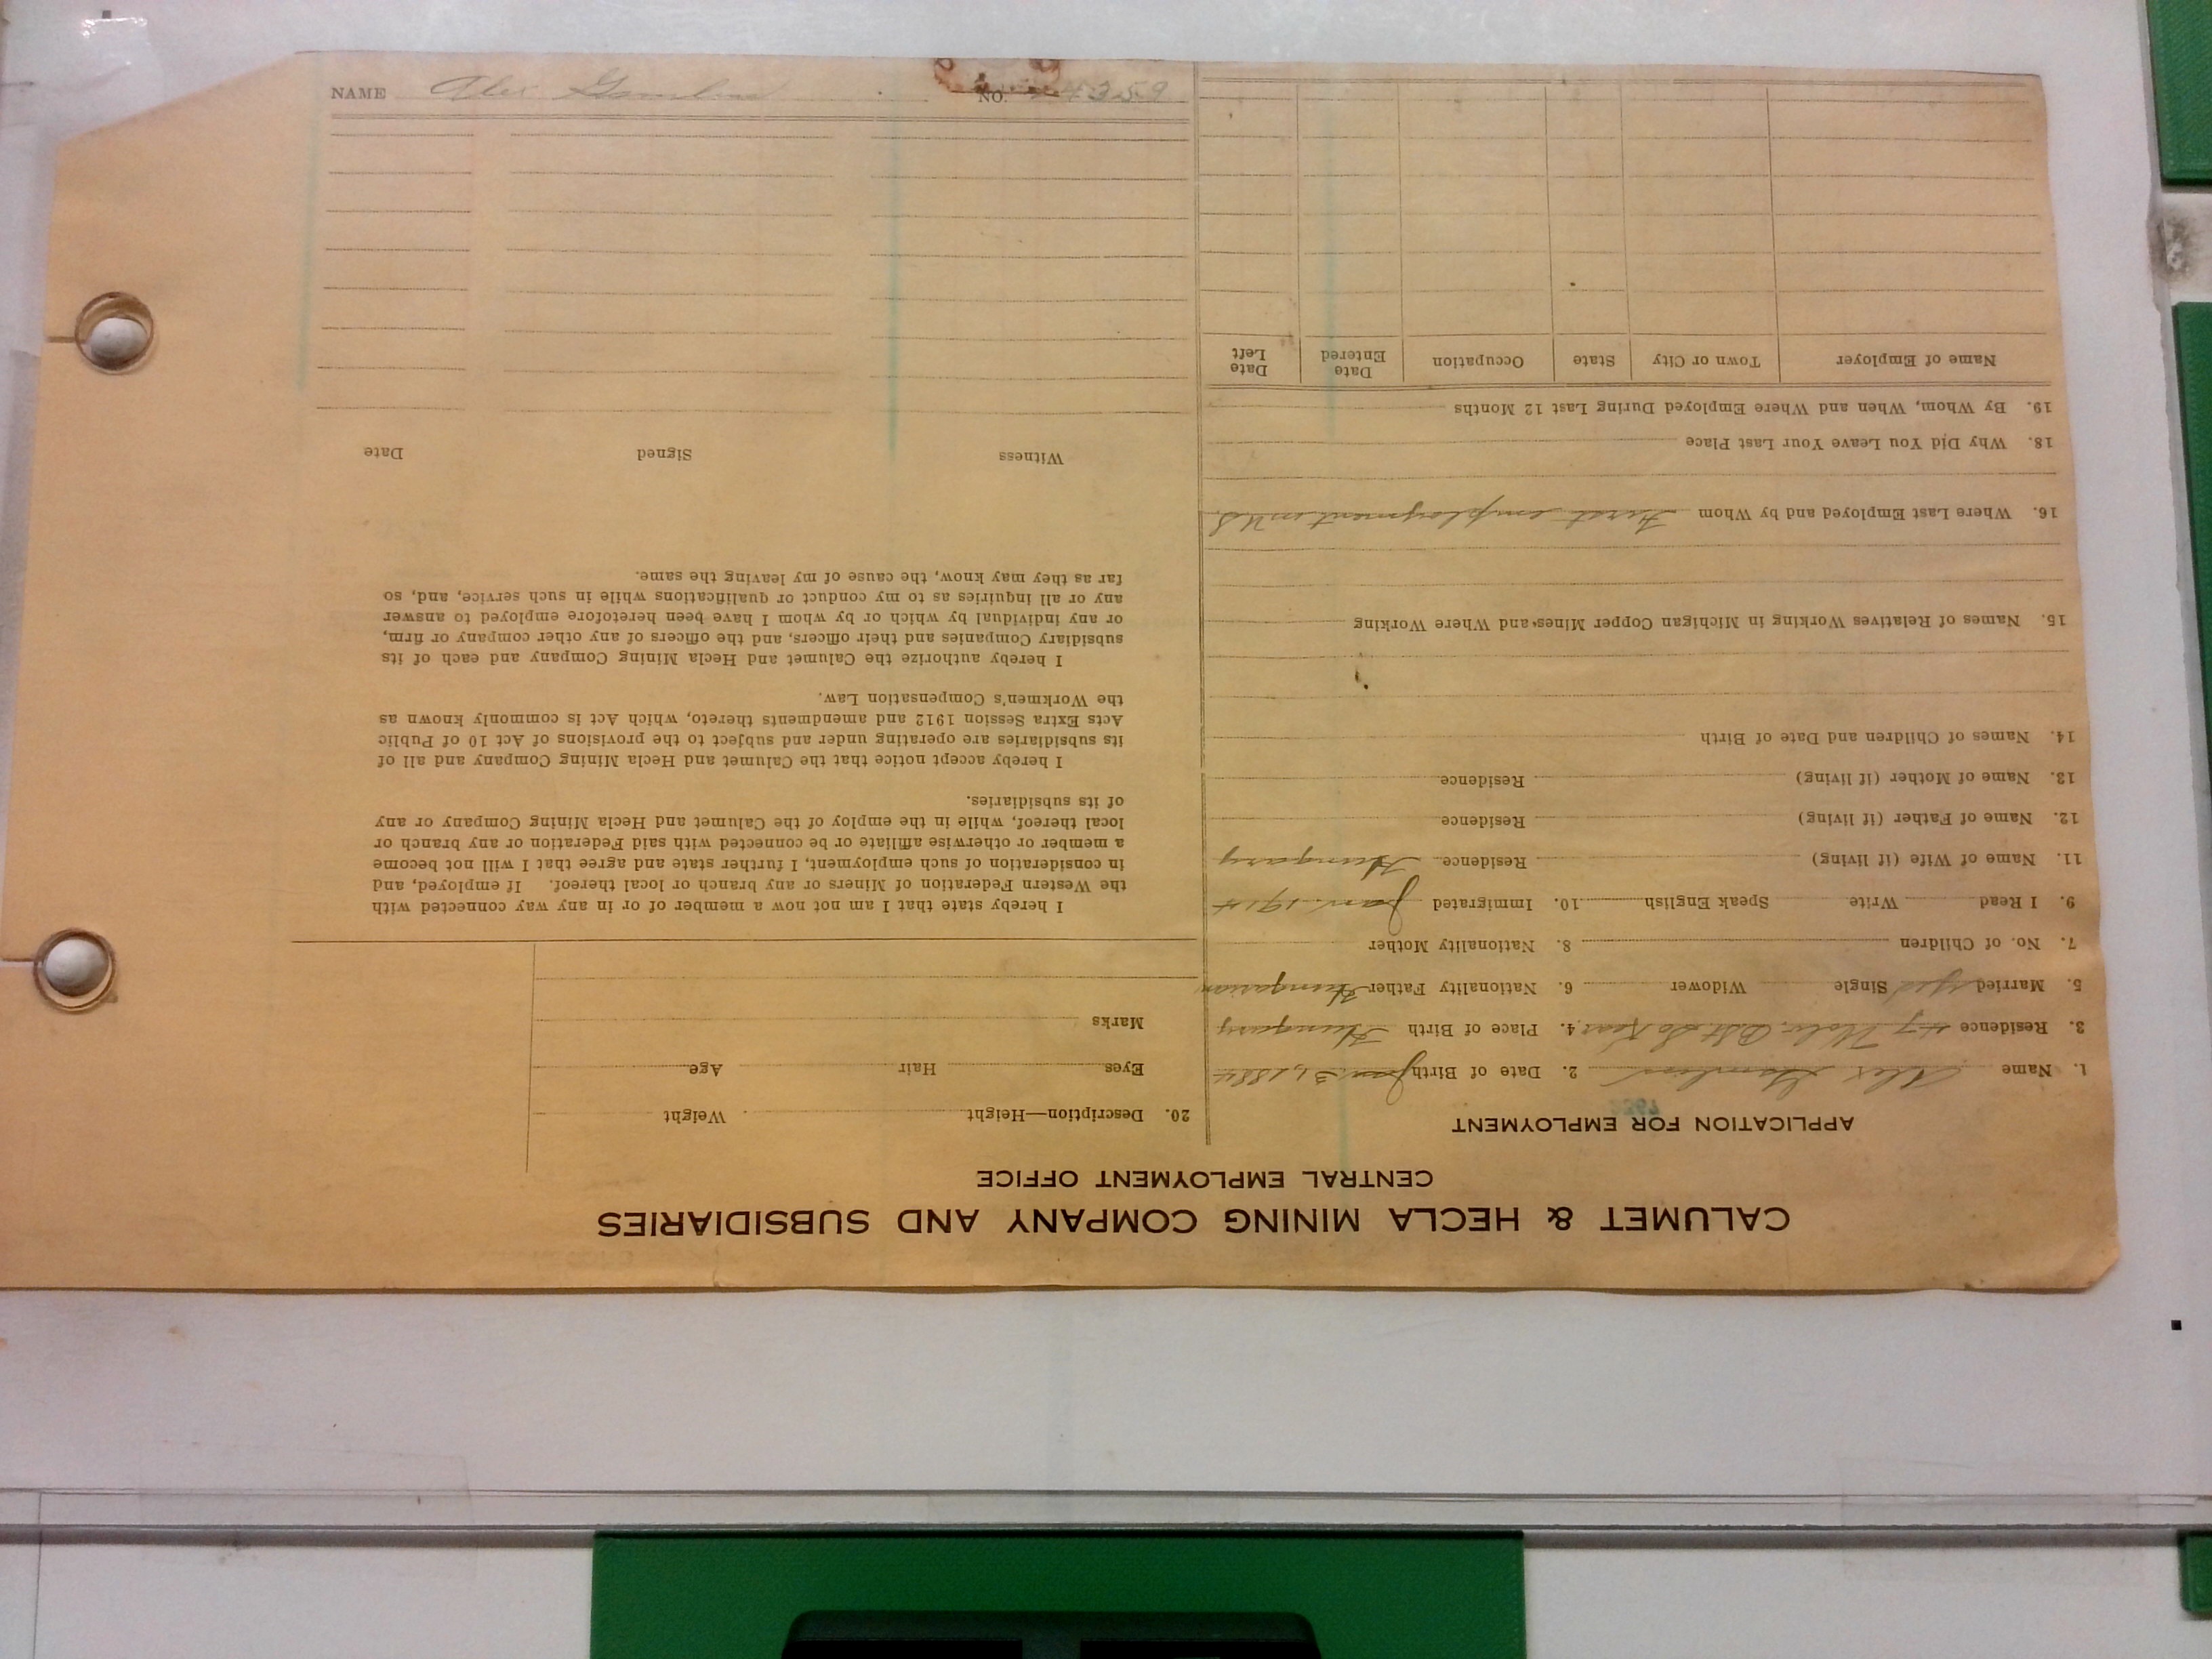 CALUMET & HECLA MINING COMPANY AND SUBSIDIARIES
CENTRAL EMPLOYMENT OFFICE
APPLICATION FOR EMPLOYMENT
1. Name Alex 2. Date of Birth Jan 31, 1884
3. Residence 4. Place of Birth Hungary
5. Married yes Single Widower 6. Nationality Father Hungarian
7. No. of Children 8. Nationality Mother
9. I Read Write Speak English 10. Immigrated Jan 1914
11. Name of Wife (if living) Residence Hungary
12. Name of Father (if living) Residence
13. Name of Mother (if living) Residence
14. Names of Children and Date of Birth
15. Names of Relatives Working in Michigan Copper Mines and Where Working
16. Where Last Employed and by Whom First employment in U S
18. Why Did You Leave Your Last Place
19. By Whom, When and Where Employed During Last 12 Months
Name of Employer Town or City State Occupation Date Entered Date Left
20. Description—Height Weight
Eyes Hair Age
Marks
I hereby state that I am not now a member of or in any way connected with
the Western Federation of Miners or any branch or local thereof. If employed, and
in consideration of such employment, I further state and agree that I will not become
a member or otherwise affiliate or be connected with said Federation or any branch or
local thereof, while in the employ of the Calumet and Hecla Mining Company or any
of its subsidiaries.
I hereby accept notice that the Calumet and Hecla Mining Company and all of
its subsidiaries are operating under and subject to the provisions of Act 10 of Public
Acts Extra Session 1912 and amendments thereto, which Act is commonly known as
the Workmen's Compensation Law.
I hereby authorize the Calumet and Hecla Mining Company and each of its
subsidiary Companies and their officers, and the officers of any other company or firm,
or any individual by which or by whom I have been heretofore employed to answer
any or all inquiries as to my conduct or qualifications while in such service, and, so
far as they may know, the cause of my leaving the same.
Witness Signed Date
NAME Alex NO. 4359